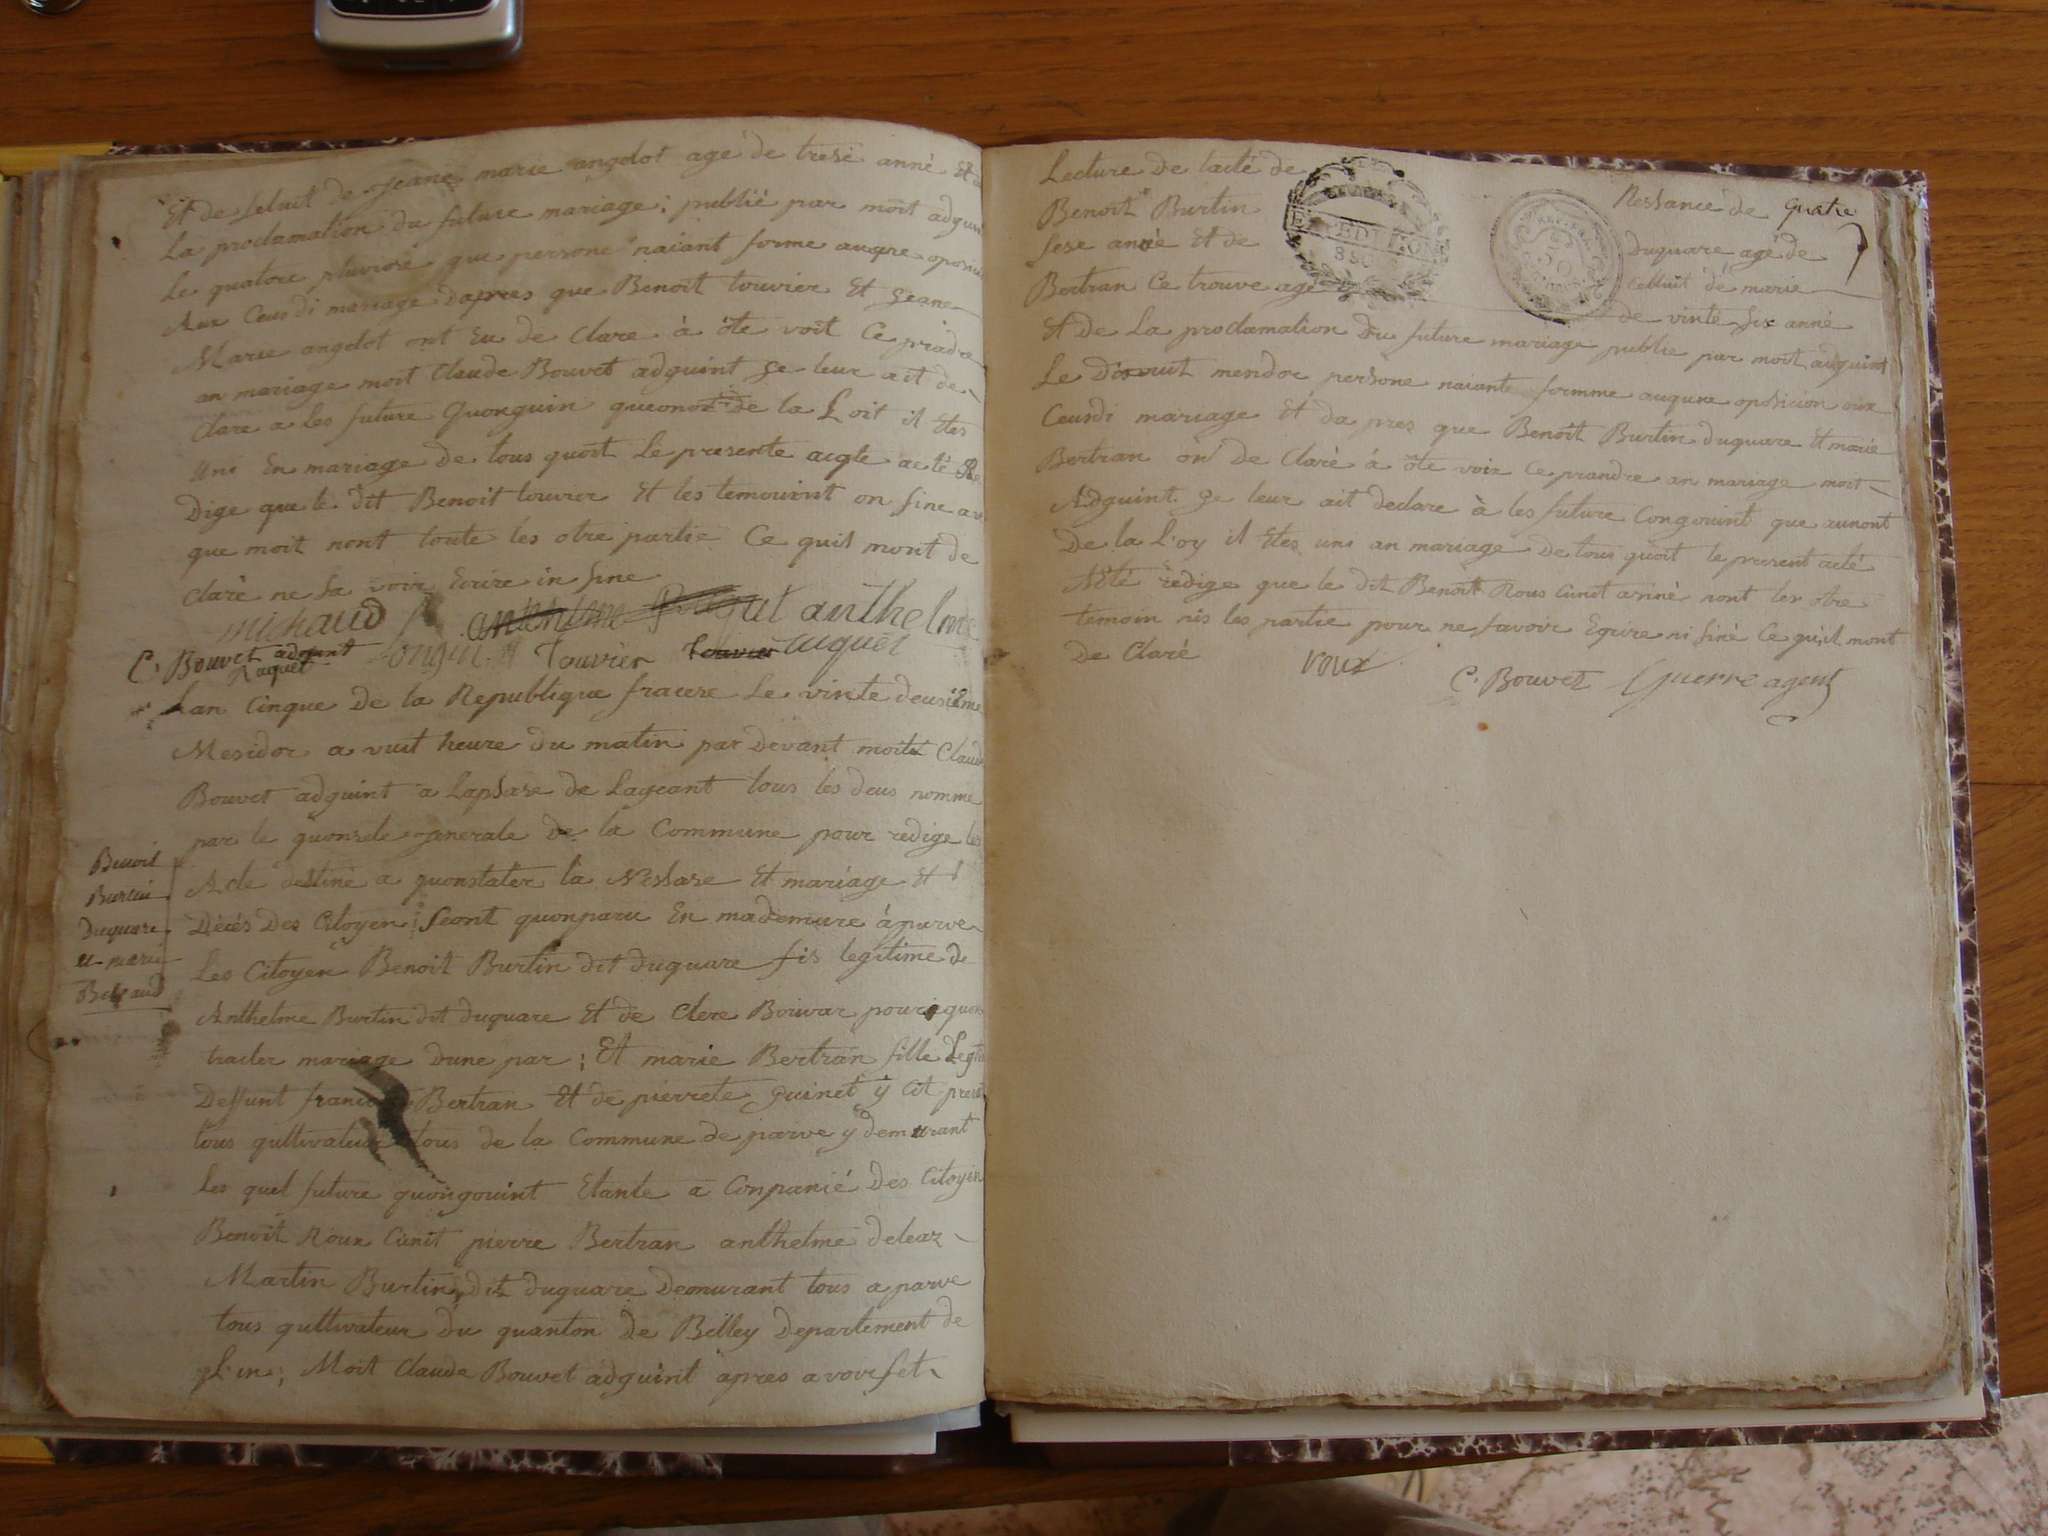 Et de seluit de Jeane marie angelot agé de trese anné Et
La proclamation du future mariage; publié par moit adguin
Le quatore pluviose que persone naiant forme auqre oposi
Aux Ceusdi mariage dapres que Benoit touvier Et geane
Marie angelot ont Eu de Clare à ôte voit Ce priadre
an mariage moit Claude Bouvet adguint ge leur ait de
Clare a les future Quonguin queonot de la Loit il Etes
uni En mariage de tous quoit Le presente acgte acté Re
Dige que le dit Benoit touvier Et les temouint on sine av
que moit nont toute les otre partie Ce quil mont de
claré ne sa voir Ecrire in sine
michaud anthelme
C. Bouvet adguint Touvier Touvier
Lan Cinque De la Republique fracere Le vinte deusieme
Mesidor a vuit heure du matin par Devant moit Claud
Bouvet adguint a Laplase de Lageant tous les deus nomme
par le quonsele generale de la Commune pour redige les
Acte destiné a quonstater la Nessase Et mariage Et
Décés Des Citoyen; Seont quonparu En mademure à parve
Benoit
Burtin
Duquare
et marie
Bertrand
Les Citoyen Benoit Burtin dit duquare fis legitime de
Anthelme Burtin dit duquare Et de Clere Boivar pour quon
tracter mariage dune par; Et marie Bertran fille Legti
Deffunt francois Bertran Et de pierrete guinet y Cit pres
tous qultivateur tous de la Commune de parve y demurant
Les quel future quongouint Etante a Conpanié Des Citoyin
Benoit Roux Cunit pierre Bertran anthelme deleaz
Martin Burtin dit duquare Demurant tous a parve
tous qultivateur du quanton de Belley Departement de
Lin; Moit Claude Bouvet adguint apres avoir fet
Lecture De tacté de Nessance de quatre
Benoit Burtin duquare agé de
sese anné Et de celluit dé marie
Bertran Ce trouve agé de vinte six anné
Et De La proclamation Du future mariage publie par moit adguint
Le Disnuit mendoc persone naiante formme auqune oposicion aux
Ceusdi mariage Et da pres que Benoit Burtin duquare Et marie
Bertran on De Claré à ôte voix Ce prandre an mariage moit
Adguint ge leur ait declare à les future Congouint que aunont
De la Loy il Etes uni an mariage De tous quoit le present acté
Acté redige que le dit Benoit Rous Cunit anné nont les otre
temoin nis les partie pour ne savoir Eqrire ni siné Ce quil mont
De Claré
roux C. Bouvet Guerre agent